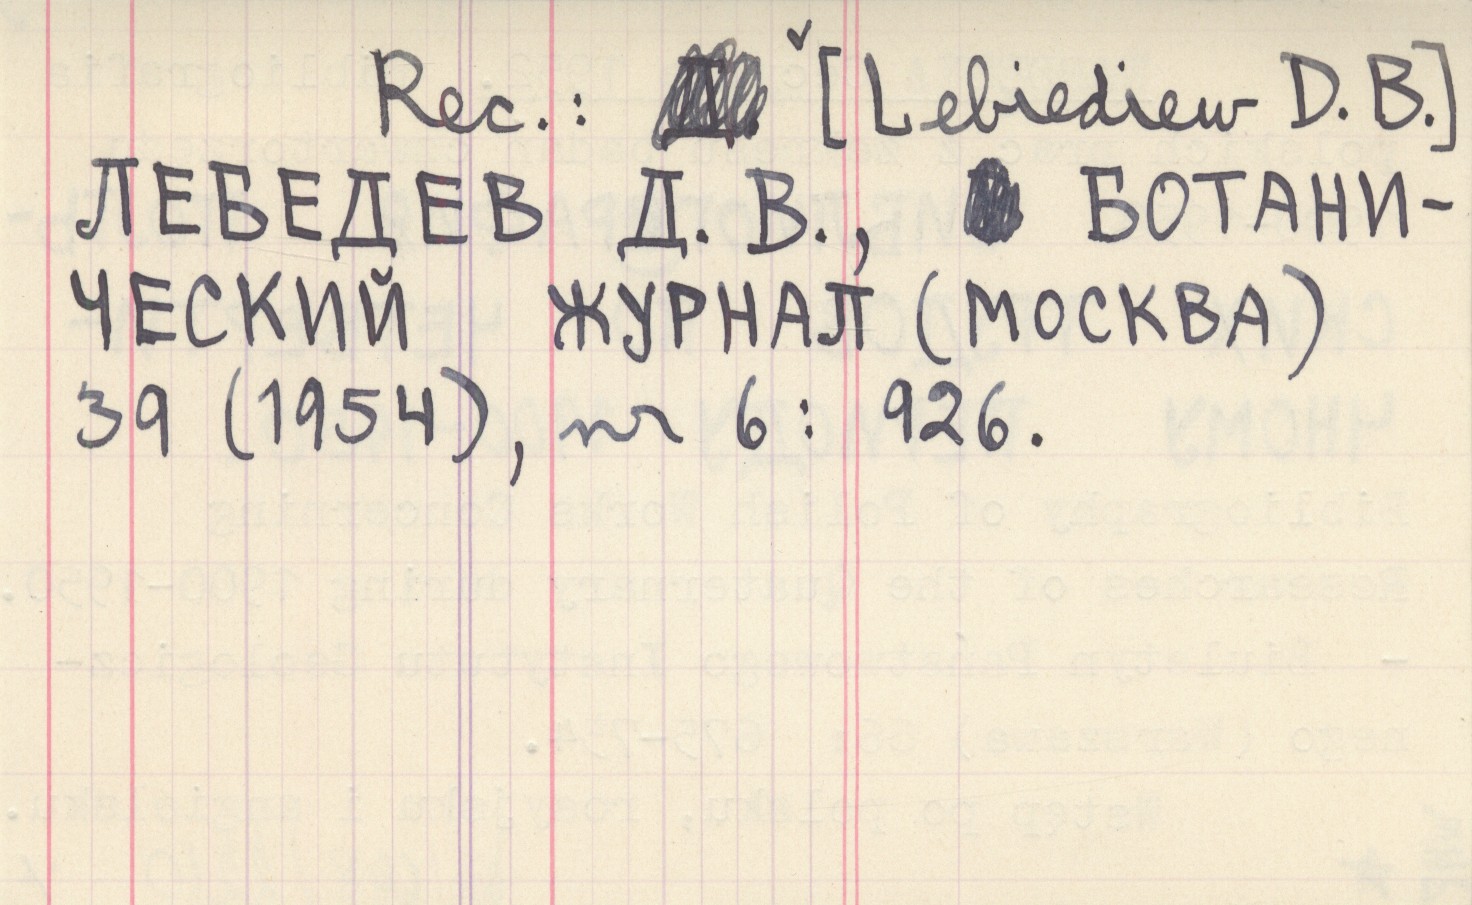 Rec.: [Lebiediew D. B.]
ЛЕБЕДЕВ Д. В., БОТАНИ-
ЧЕСКИЙ ЖУРНАЛ (МОСКВА)
39 (1954), nr 6: 926.